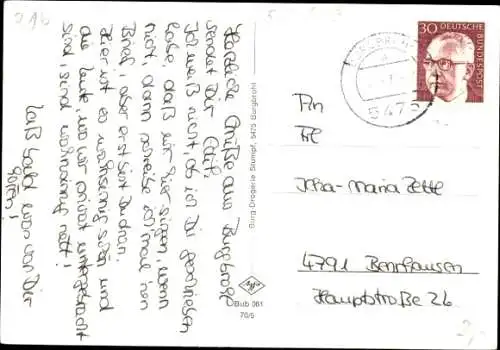 Herzliche Grüße aus Burgbrohl
sendet Dir Edith.
Ich weiß nicht, ob ich Dir geschrieben
habe, daß wir hier singen, wenn
nicht, dann schreibe ich mal 'nen
Brief, aber erst bist Du dran.
Hier ist es wahnsinnig schön und
die Leute, wo wir privat untergebracht
sind, sind wahnsinnig nett!
Laß bald was von Dir
hören!
Burg-Drogerie Stumpf, 5475 Burgbrohl
Agfa
DBub 361
70/5
30 DEUTSCHE
BUNDESPOST
5475
An
Frl.
Maria Zette
4791 Benhausen
Hauptstraße 26
2,-